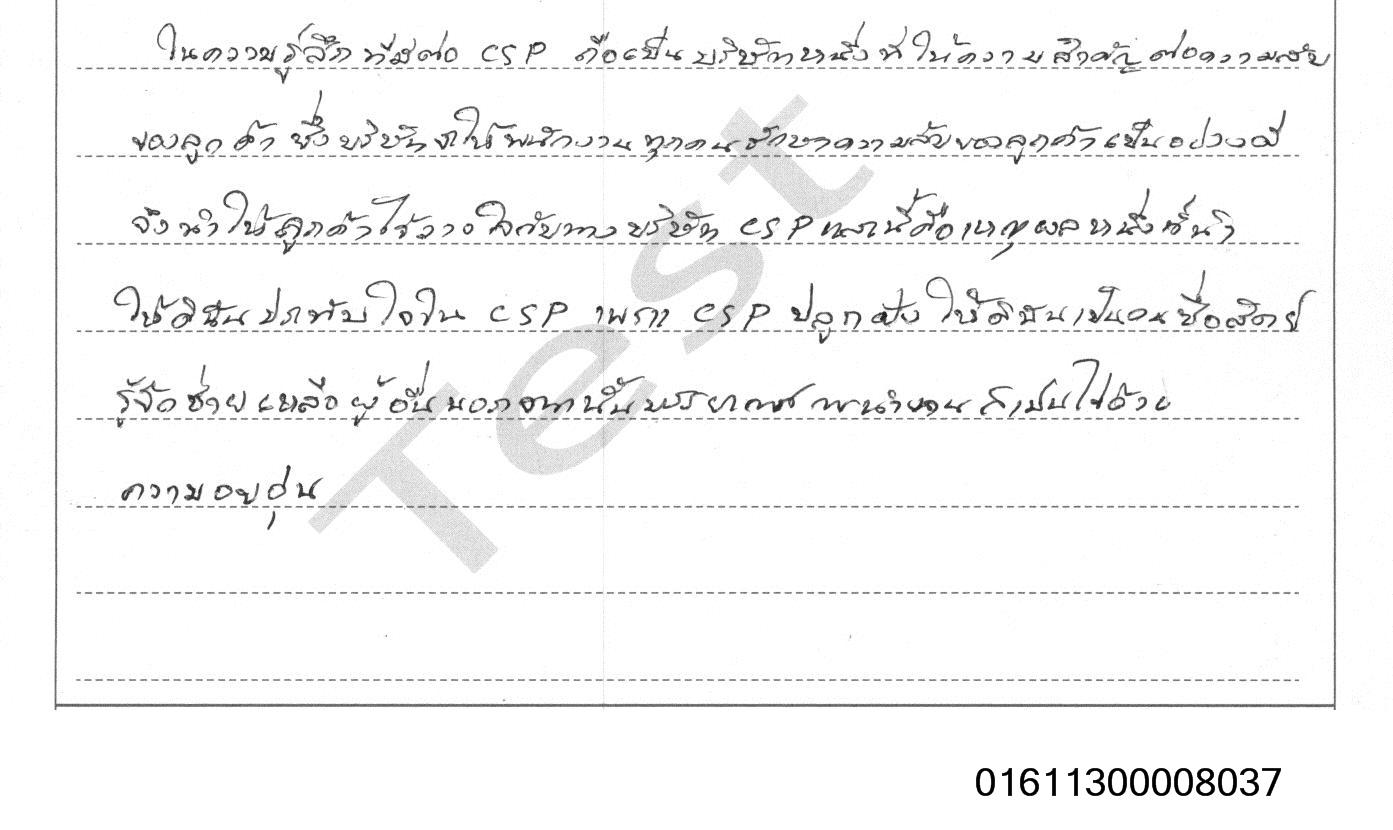 ในความรู้สึกที่มีต่อ CSP ถือเป็นบริษัทหนึ่งที่ให้ความสำคัญต่อความลับ
ของลูกค้า ซึ่งบริษัทจะให้พนักงานทุกคนรักษาความลับของลูกค้าเป็นอย่างดี
จึงนำให้ลูกค้าไว้วางใจกับทางบริษัท CSP และนี้คือเหตุผลหนึ่งที่นำ
ให้ดิฉันประทับใจใน CSP เพราะ CSP ปลูกฝังให้ดิฉันเป็นคนซื่อสัตย์
รู้จักช่วยเหลือผู้อื่นนอกจากนั้นบรรยากาศ ก็เป็นไปด้วย
ความอบอุ่น
Test
01611300008037